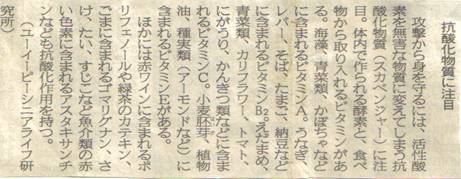 抗酸化物質に注目
攻撃から身を守るには、活性酸
素を無害な物質に変えてしまう抗
酸化物質（スカベンジャー）に注
目。体内で作られる酵素と、食べ
物から取り入れるビタミンがあ
る。海藻、青菜類、かぼちゃなど
に含まれるビタミンA。うなぎ、
レバー、そば、たまご、納豆など
に含まれるビタミンB₂。えだまめ、
青菜類、カリフラワー、トマト、
にがうり、かんきつ類などに含ま
れるビタミンC。小麦胚芽、植物
油、種実類（アーモンドなど）に
含まれるビタミンEがある。
ほかには赤ワインに含まれるポ
リフェノールや緑茶のカテキン、
ごまに含まれるゴマリグナン、さ
け、たい、すじこなど魚介類の赤
い色素に含まれるアスタキサンチ
ンなども抗酸化作用を持つ。
（ユーイーピーシニアライフ研
究所）